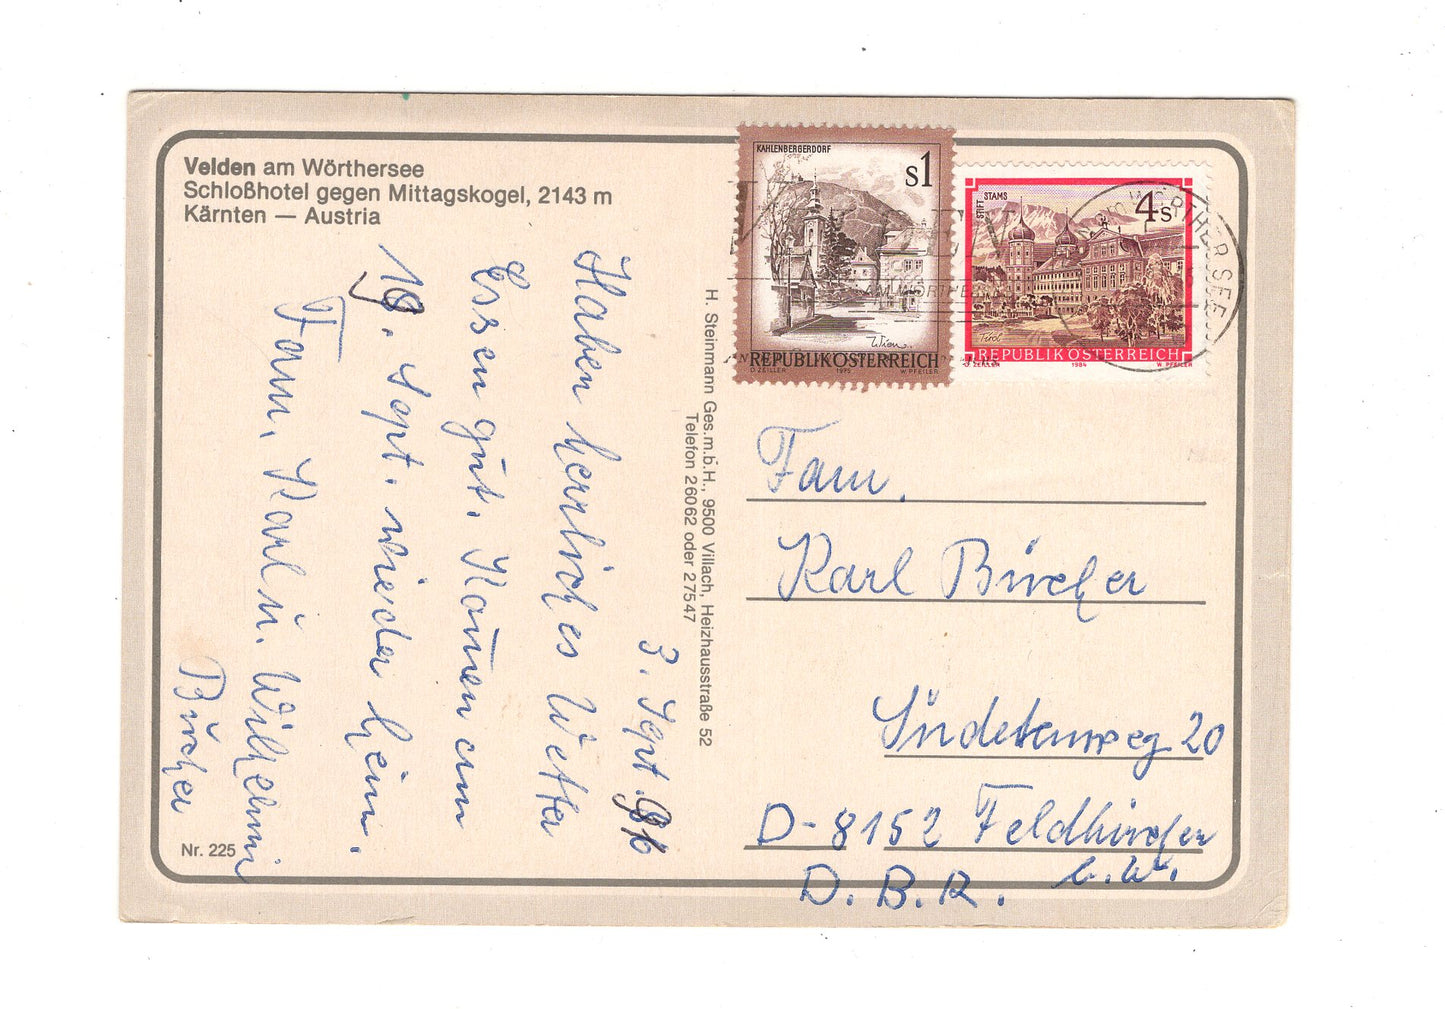 Velden am Wörthersee
Schloßhotel gegen Mittagskogel, 2143 m
Kärnten — Austria
3. Sept. 86
Haben herrliches Wetter
Essen gut. Kommen am
19. Sept. wieder heim.
Fam. Karl u. Wilhelmi
Bücher
Nr. 225
H. Steinmann Ges.m.b.H., 9500 Villach, Heizhausstraße 52
Telefon 26062 oder 27547
KAHLENBERGERDORF
S1
Wien
REPUBLIK ÖSTERREICH
D ZEILLER 1975 W. PFEILER
STIFT STAMS
4S
Tirol
REPUBLIK ÖSTERREICH
D ZEILLER 1984 W PFEILER
AM WÖRTHER SEE
Fam.
Karl Bücher
Südetenweg 20
D-8152 Feldkirchen
D.B.R.